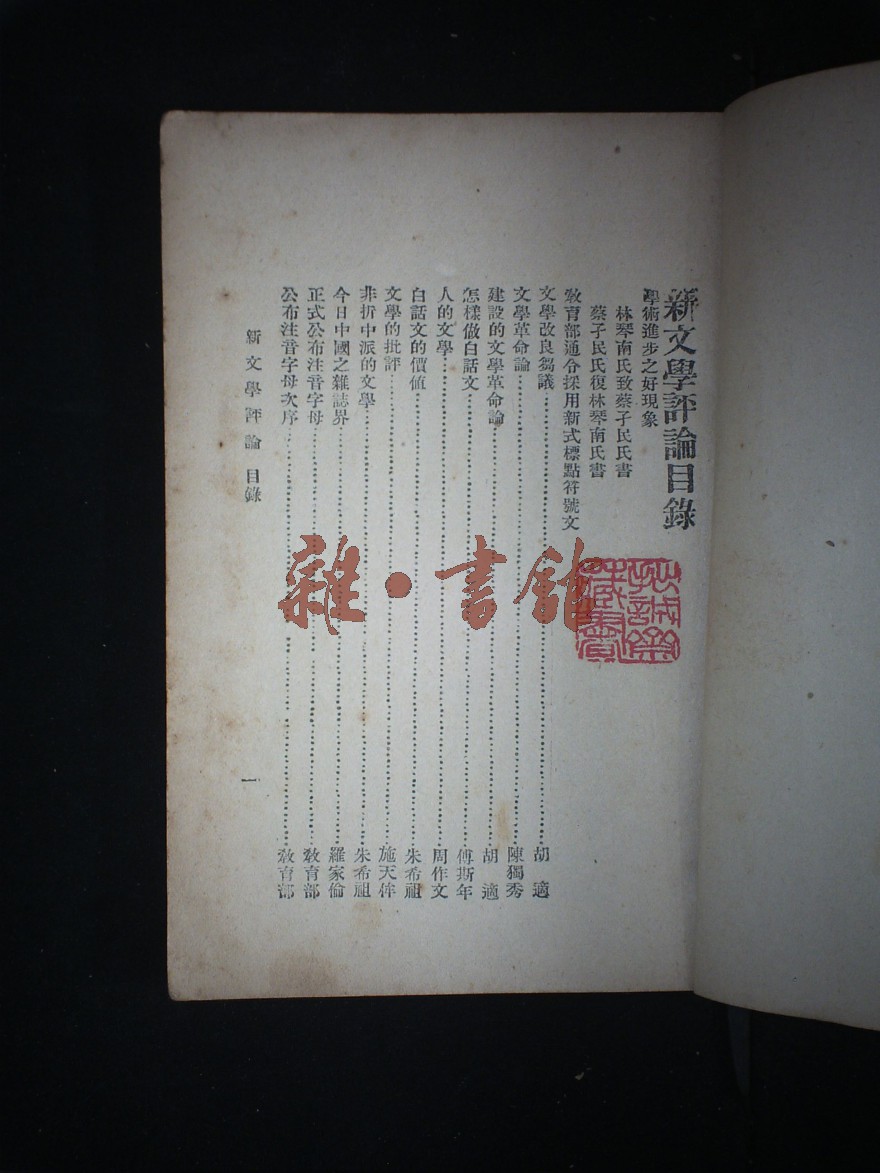 新文學評論目錄
學術進步之好現象
林琴南氏致蔡孑民氏書
蔡孑民氏復林琴南氏書
教育部通令採用新式標點符號文
文學改良芻議 胡適
文學革命論 陳獨秀
建設的文學革命論 胡適
怎樣做白話文 傅斯年
人的文學 周作文
白話文的價值 朱希祖
文學的批評 施天侔
非折中派的文學 朱希祖
今日中國之雜誌界 羅家倫
正式公布注音字母 教育部
公布注音字母次序 教育部
新文學評論 目錄
一
雜·書館